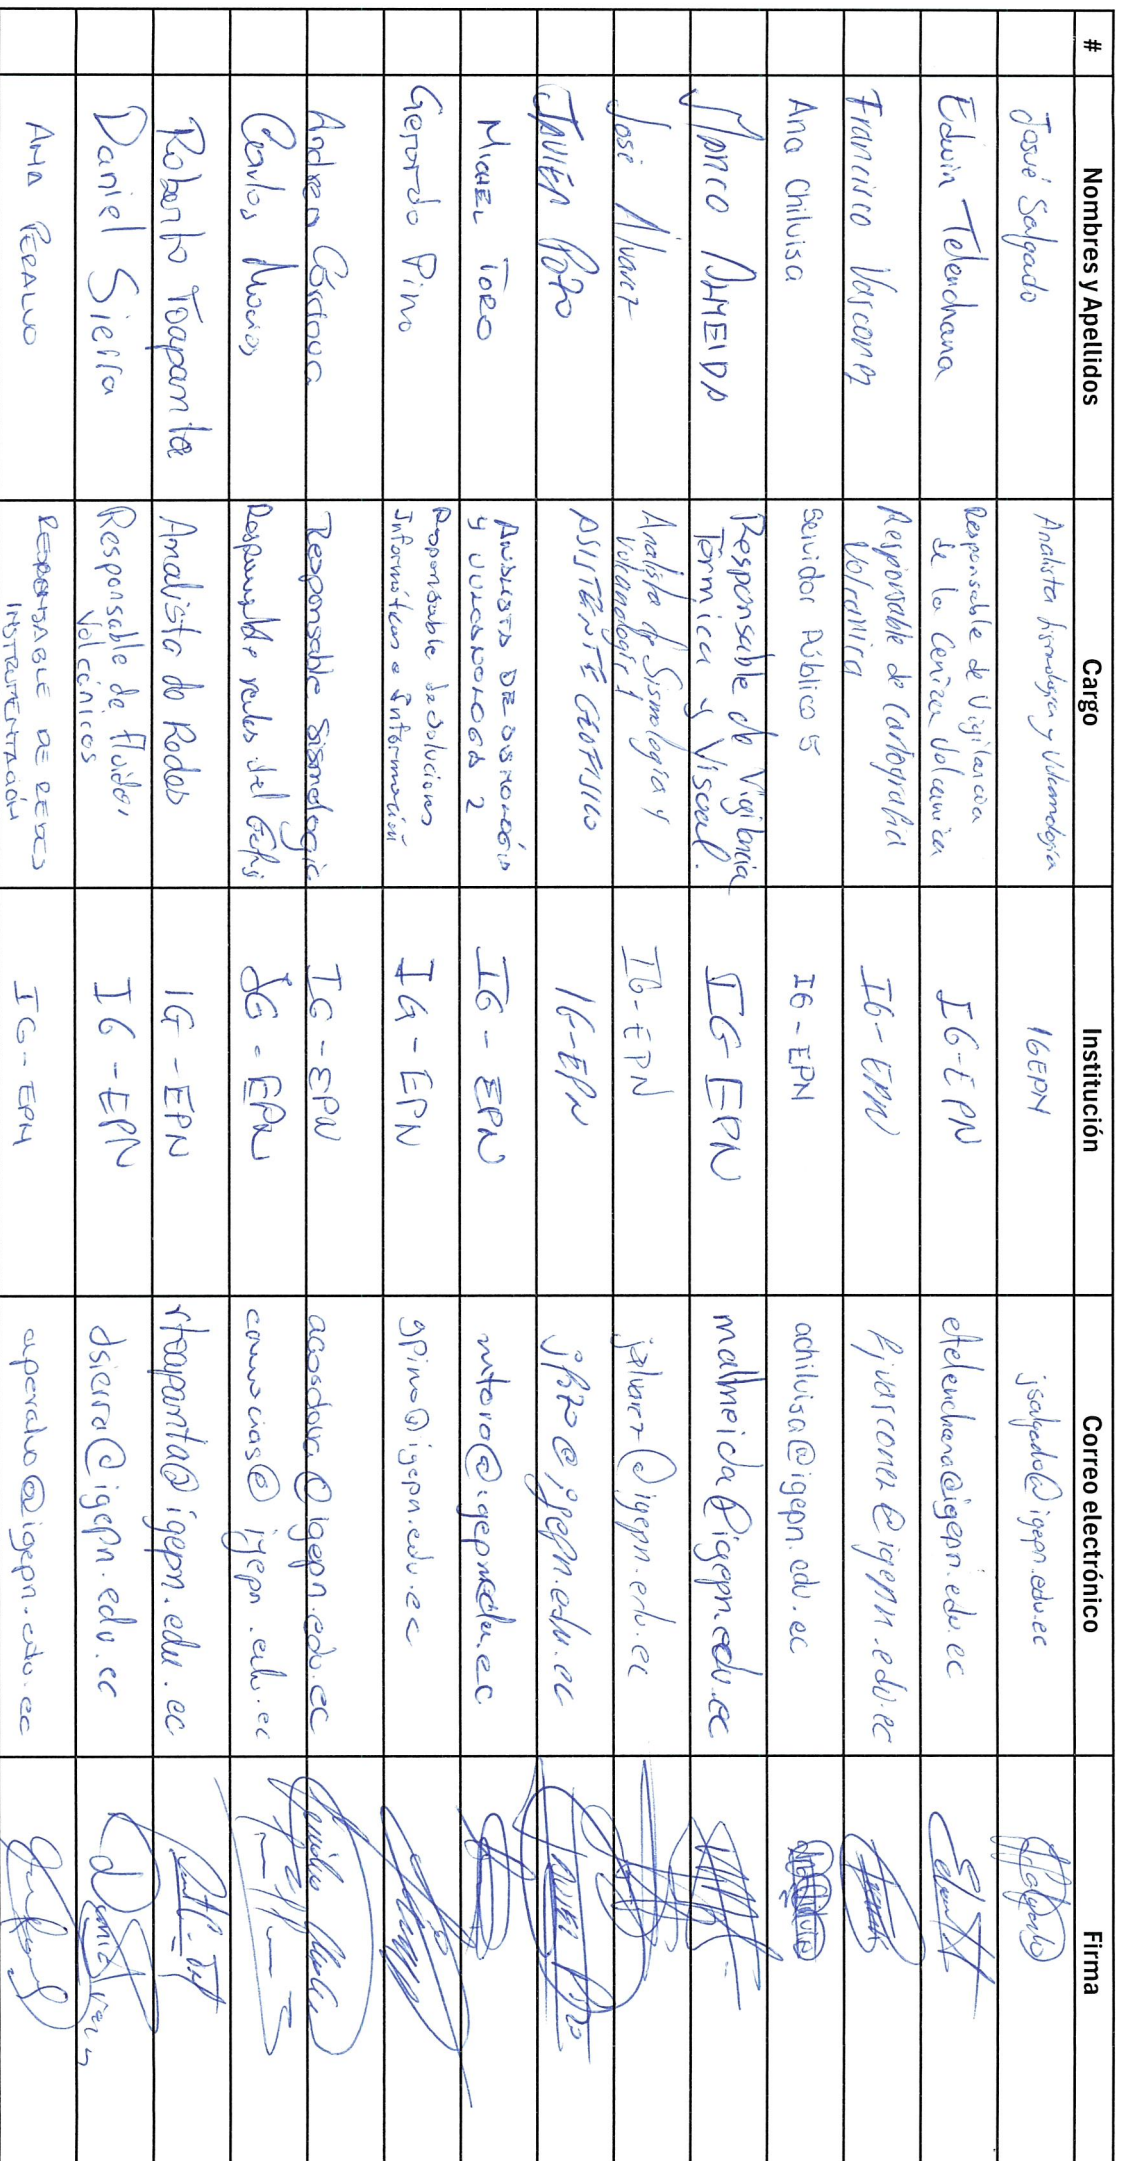 # Nombres y Apellidos Cargo Institución Correo electrónico Firma
Josué Salgado Analista Sismología y Vulcanología IGEPN jsalgado@igepn.edu.ec
Edwin Telenchana Responsable de Vigilancia de la Ceniza Volcanica IG-EPN etelenchana@igepn.edu.ec
Francisco Vasconez Responsable de Cartografia Volcánica IG-EPN fjvasconez@igepn.edu.ec
Ana Chiluisa Servidor Público 5 IG-EPN achiluisa@igepn.edu.ec
Marco ALMEIDA Responsable de Vigilancia Térmica y Visual. IG EPN malmeida@igepn.edu.ec
José Alvarez Analista de Sismología y Vulcanología 1 IG-EPN jalvarez@igepn.edu.ec
JAVIER POZO ASISTENTE GEOFISICO IG-EPN jpozo@igepn.edu.ec
MICHEL TORO ANALISTA DE SISMOLOGÍA Y VULCANOLOGÍA 2 IG-EPN mtoro@igepn.edu.ec
Gerardo Pino Responsable de Soluciones Informáticas e Información IG-EPN gpino@igepn.edu.ec
Andrea Córdova Responsable Sismología IG-EPN acordova@igepn.edu.ec
Carlos Macias Responsable redes del IG-EPN @igepn.edu.ec
Roberto Toapanta Analista de Redes IG-EPN rtoapanta@igepn.edu.ec
Daniel Sierra Responsable de fluidos Volcánicos IG-EPN dsierra@igepn.edu.ec
ANA PERALVO RESPONSABLE DE REDES INSTRUMENTACIÓN IG-EPN aperalvo@igepn.edu.ec